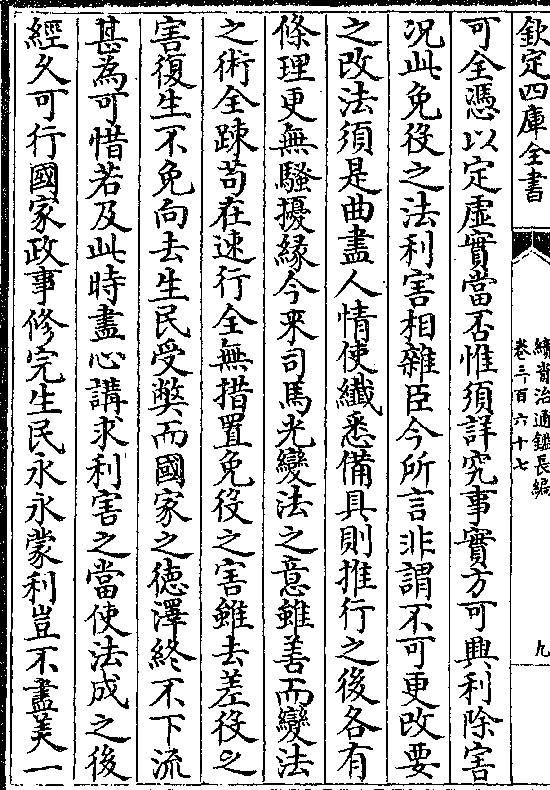 欽定四庫全書
續資治通鑑長編
卷三百六十七
九
可全憑以定虛實當否惟須詳究事實方可興利除害
況此免役之法利害相雜臣今所言非謂不可更改要
之改法須是曲盡人情使纎悉備具則推行之後各有
條理更無騷擾緣今來司馬光變法之意雖善而變法
之術全踈苟在速行全無措置免役之害雖去差役之
害復生不免向去生民受弊而國家之德澤終不下流
甚為可惜若及此時盡心講求利害之當使法成之後
經久可行國家政事修完生民永永蒙利豈不盡美一